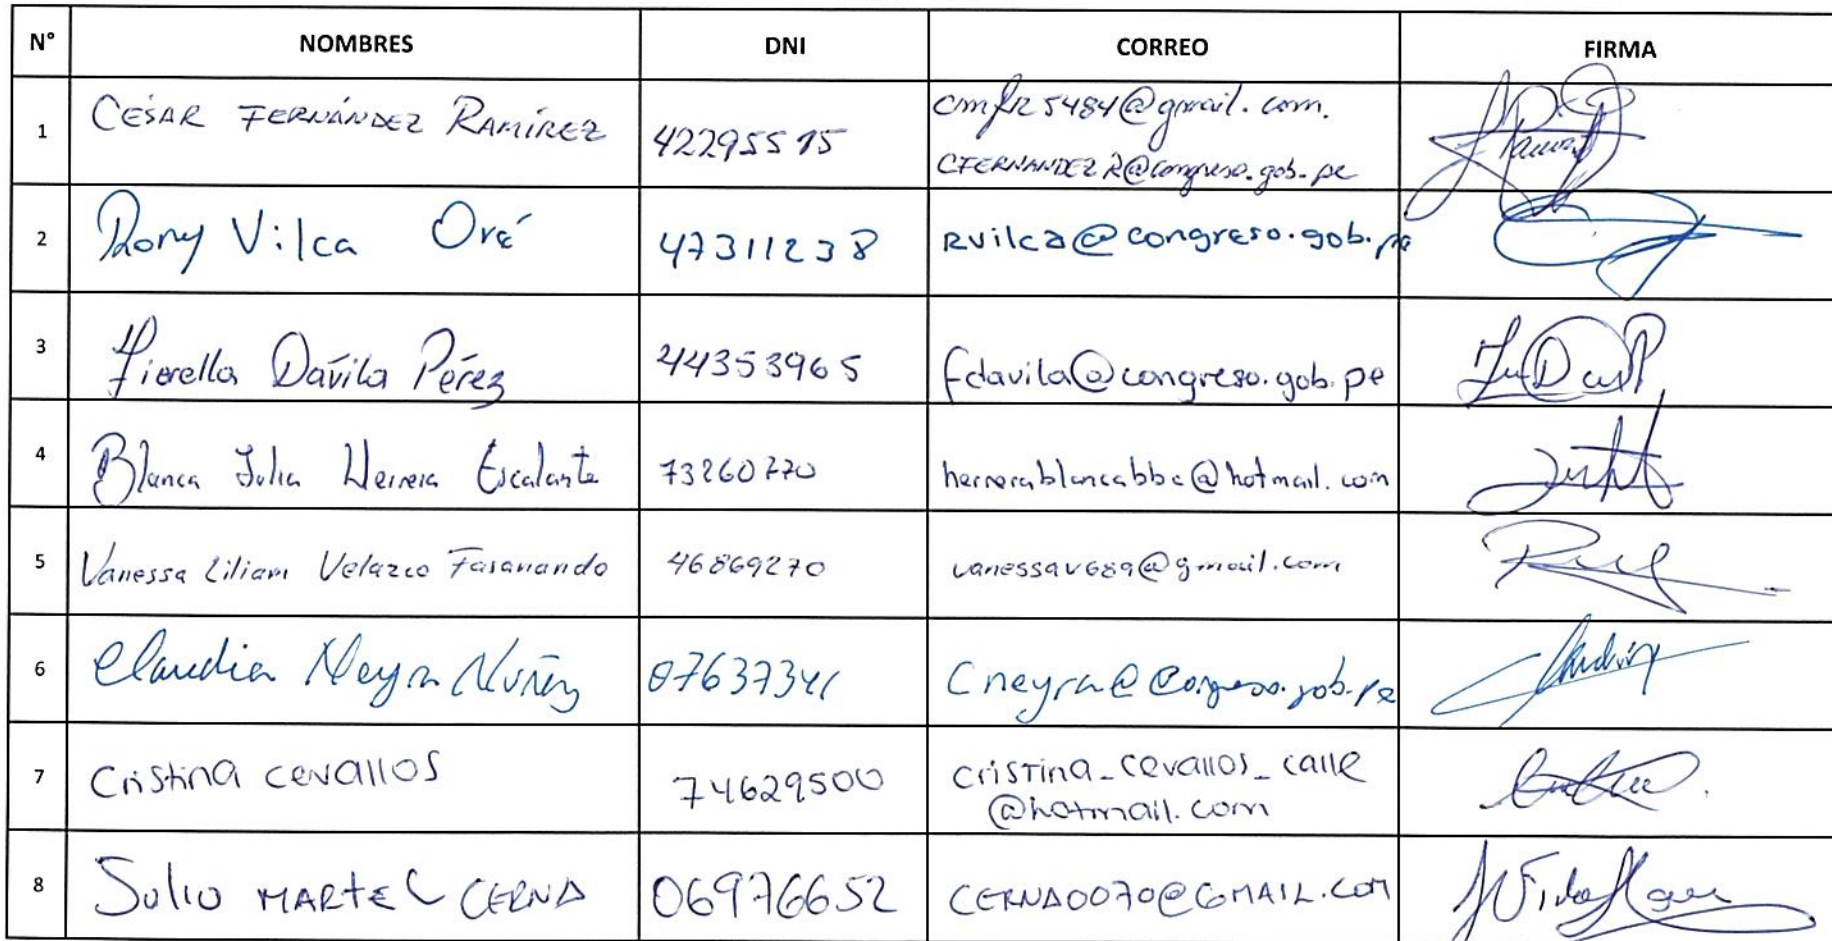 N° NOMBRES DNI CORREO FIRMA
1 CESAR FERNÁNDEZ RAMÍREZ 42295515 cmfr5484@gmail.com.
CFERNANDEZR@congreso.gob.pe
2 Rony Vilca Oré 47311238 rvilca@congreso.gob.pe
3 Fiorella Dávila Pérez 44353965 fdavila@congreso.gob.pe
4 Blanca Julia Herrera Escalante 73260770 herrerablancabbc@hotmail.com
5 Vanessa Liliam Velazco Fasanando 46869270 vanessav689@gmail.com
6 Claudia Neyra Núñez 07637341 Cneyra@Congreso.gob.pe
7 Cristina cevallos 74629500 cristina_cevallos_calle
@hotmail.com
8 Julio MARTEL CERNA 06976652 CERNA0070@GMAIL.COM